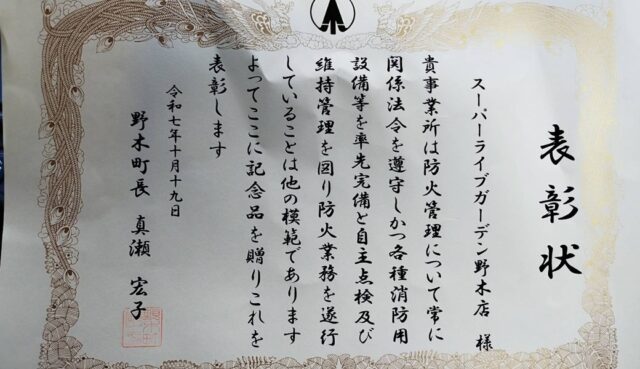 表彰状
スーパーライブガーデン野木店 様
貴事業所は防火管理について常に
関係法令を遵守しかつ各種消防用
設備等を率先完備と自主点検及び
維持管理を図り防火業務を遂行
していることは他の模範であります
よってここに記念品を贈りこれを
表彰します
令和七年十月十九日
野木町長 真瀬 宏子